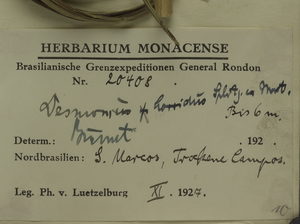 HERBARIUM MONACENSE
Brasilianische Grenzexpeditionen General Rondon
Nr. 20408.
Desmoncus horridus Splitg. ex Mart.
Bis 6 m.
Determ.: Burret 192 .
Nordbrasilien: S. Marcos, Trockene Campos.
Leg. Ph. v. Luetzelburg XI. 1927.